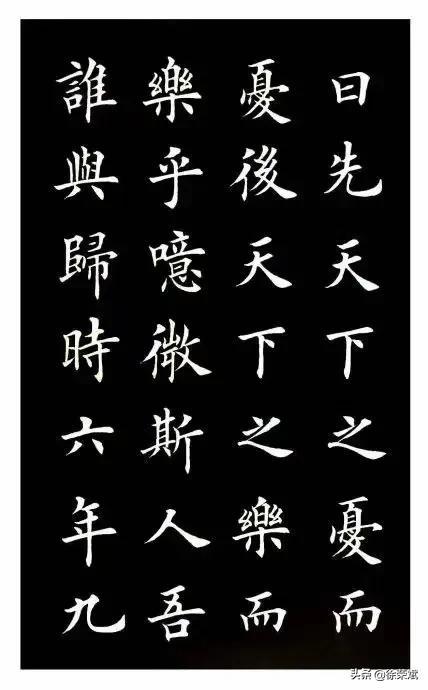 曰先天下之憂而
憂後天下之樂而
樂乎噫微斯人吾
誰與歸時六年九
头条 @徐荣斌